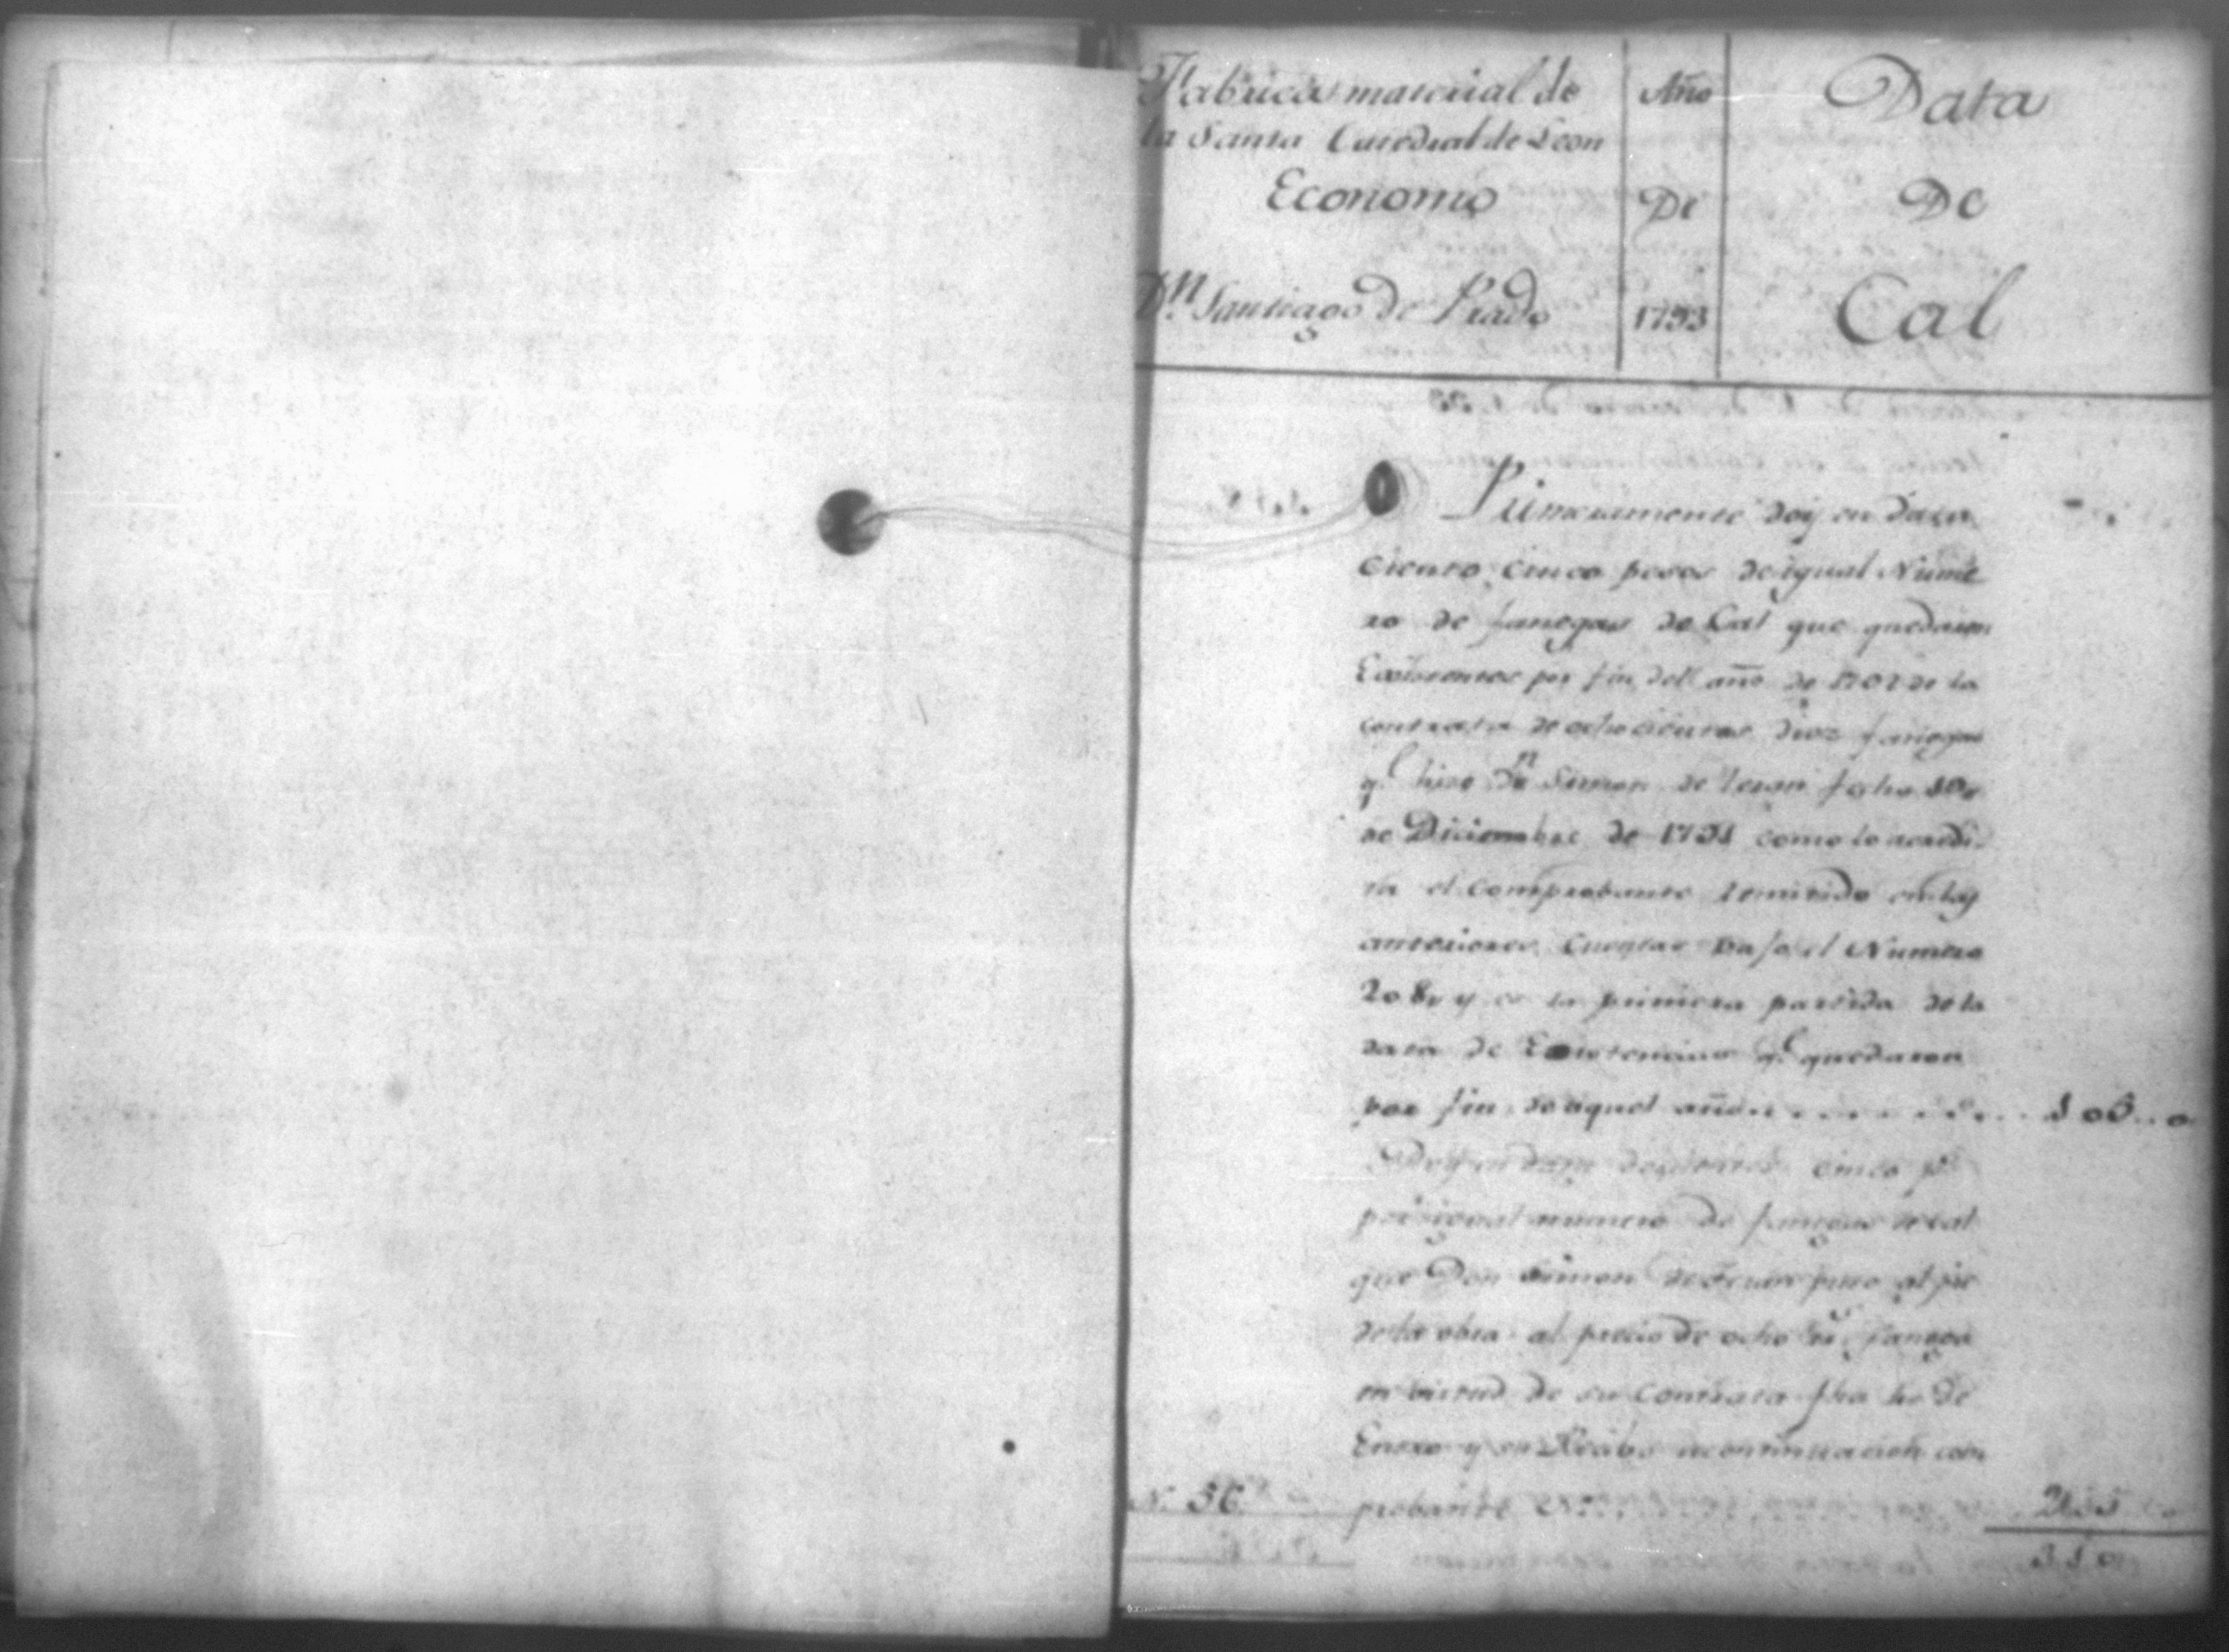 Fabrica material de
la Santa Catedral de Leon
Economo
Dn. Santiago de Prado
Año
De
1793
Data
De
Cal
Primeramente doy en data
ciento cinco pesos de igual Nume
ro de fanegas de Cal que quedaron
Existentes por fin del año de 1792 de la
contrata de ochocientas diez fanegas
q.e hizo Dn Simon de Teran fecha 30,,
de Diciembre de 1791 como lo acredi-
ta el comprobante remitido en las
anteriores Cuentas bajo el Numero
208,, y es la primera partida de la
data de Existencias q.e quedaron
por fin de aquel año . . . . . . . . . 105.. o
Doy en data doscientos cinco p.s
por igual numero de fanegas de cal
que Don Simon de Teran puso al pie
de la obra al precio de ocho rr.s fanega
en virtud de su Contrata fha de
Enero y su Recibo a continuacion com
N. 36. probante
205
310